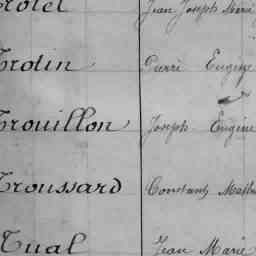 Jean Joseph Marie
Trodin Pierre Eugène
Trouillon Joseph Eugène
Troussard Constant
Tual Jean Marie